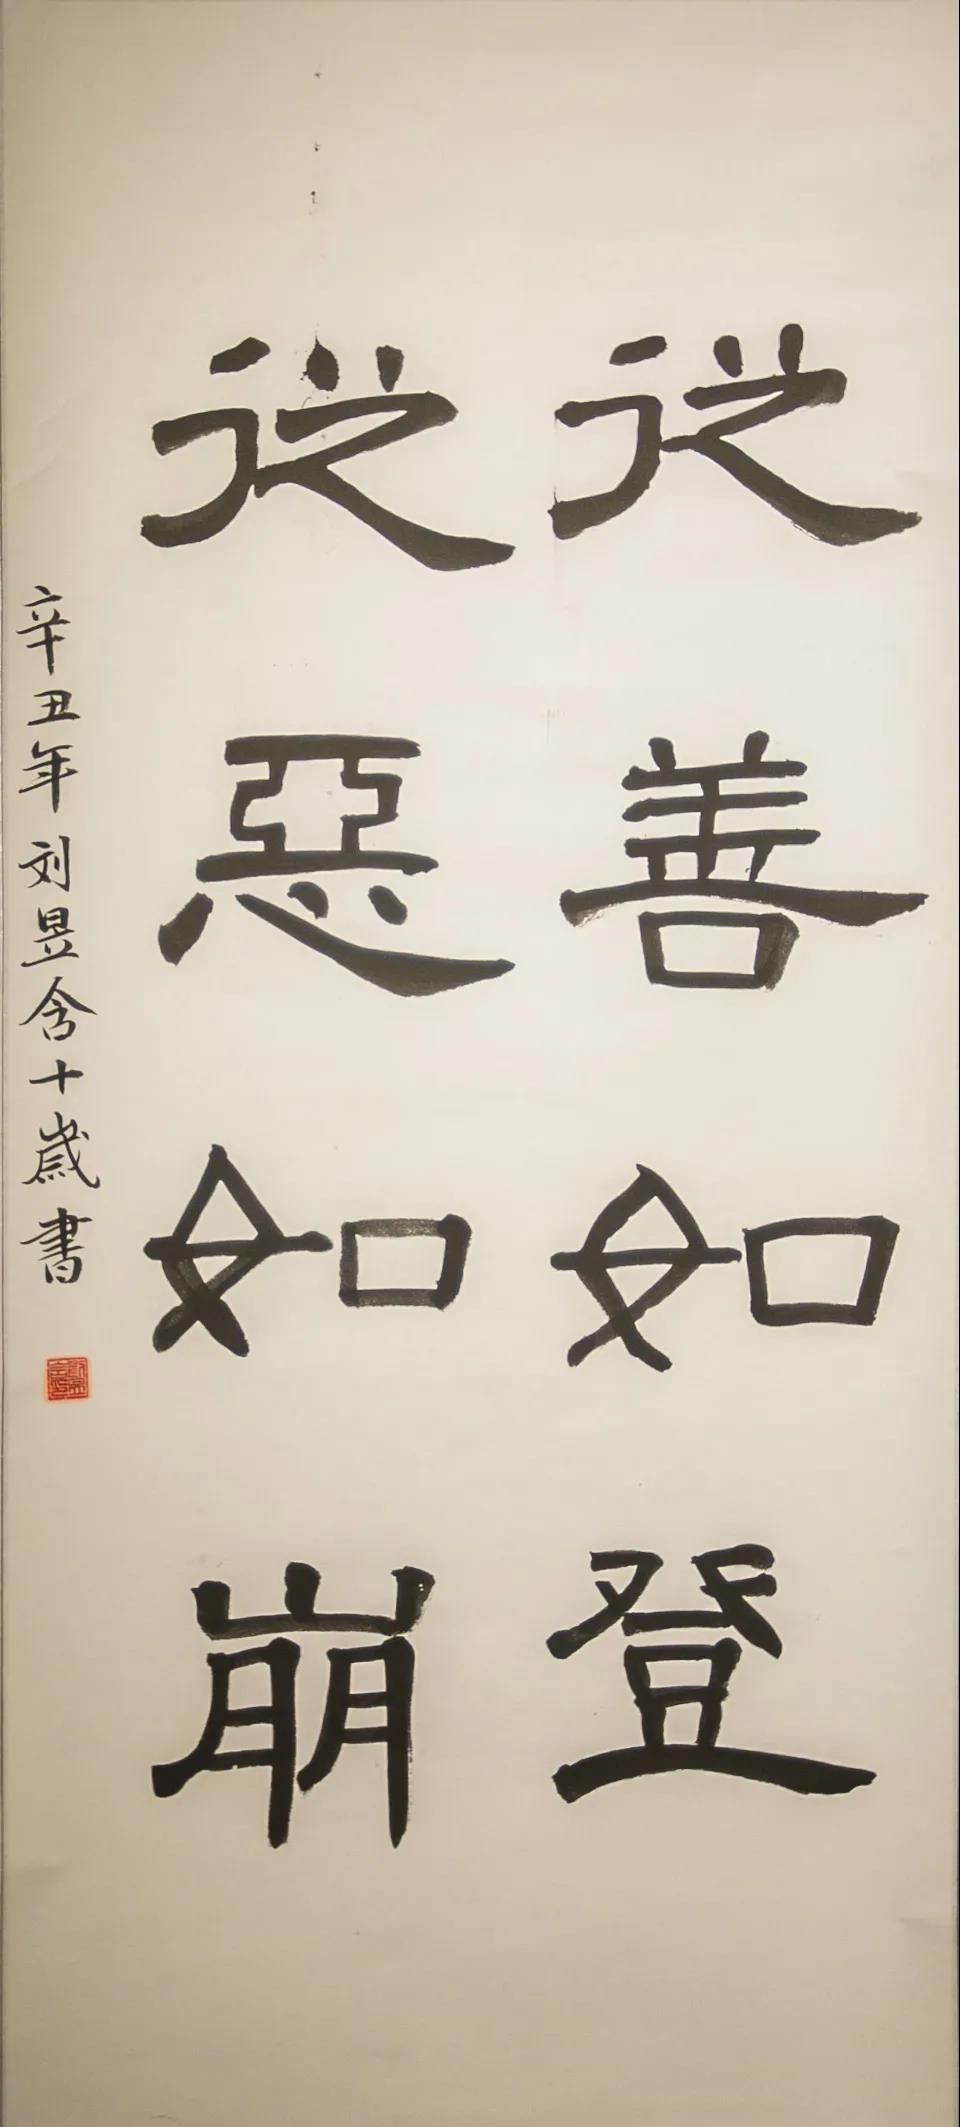 從善如登
從惡如崩
辛丑年刘昱含十歲書